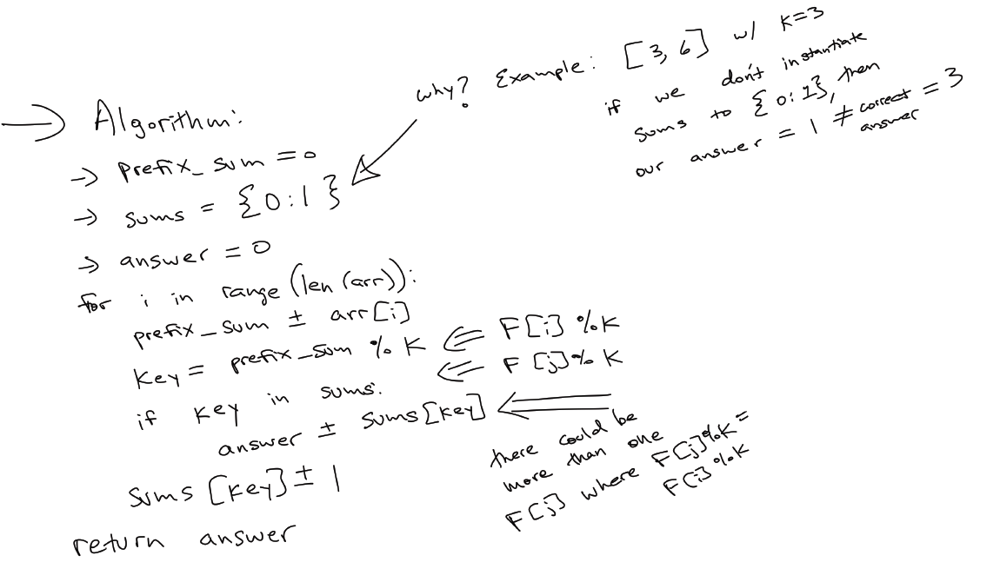 → Algorithm:
→ prefix_sum = 0
→ sums = {0:1}
→ answer = 0
for i in range (len (arr)):
prefix_sum ± arr[i]
Key = prefix_sum % K ⇐ F[i] % K
if key in sums: ⇐ F[j] % K
answer ± sums[key] ⇐
sums [key] ± 1
return answer
why? Example: [3, 6] w/ K=3
if we don't instantiate
sums to {0:1}, then
our answer = 1 ≠ correct answer = 3
there could be
more than one
F[j] where F[j]%K =
F[i]%K